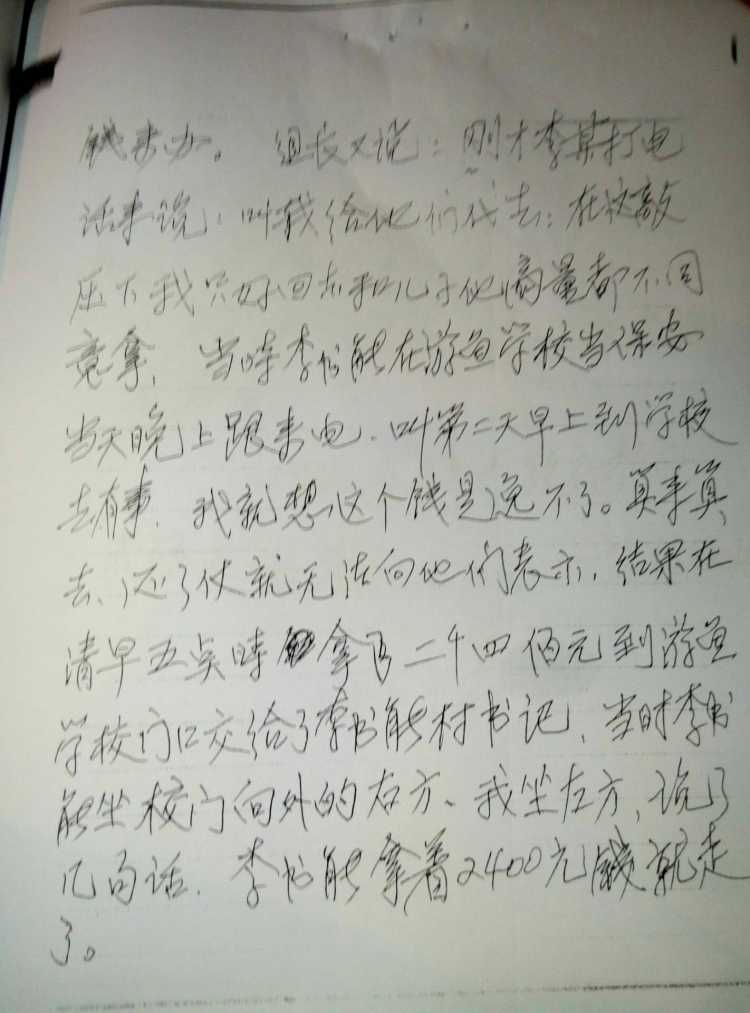 钱来办。组长又说：刚才李某打电
话来说：叫我给他们代去：在这敲
压下我只好回去和儿子他商量都不同
意拿，当时李书能在游鱼学校当保安
当天晚上跟来电、叫第二天早上到学校
去有事，我就想这个钱是逸不了。算来算
去、还了仗就无法向他们表示，结果在
清早五点时拿了二千四佰元到游鱼
学校门口交给了李书能村书记，当时李书
能坐校门向外的右方、我坐左方，说了
几句话．李书能拿着2400元钱就走
了。